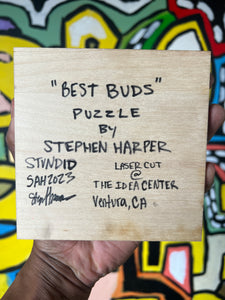 "BEST BUDS"
PUZZLE
BY
STEPHEN HARPER
STVNDID
SAH2023
LASER CUT
@
THE IDEA CENTER
Ventura, CA